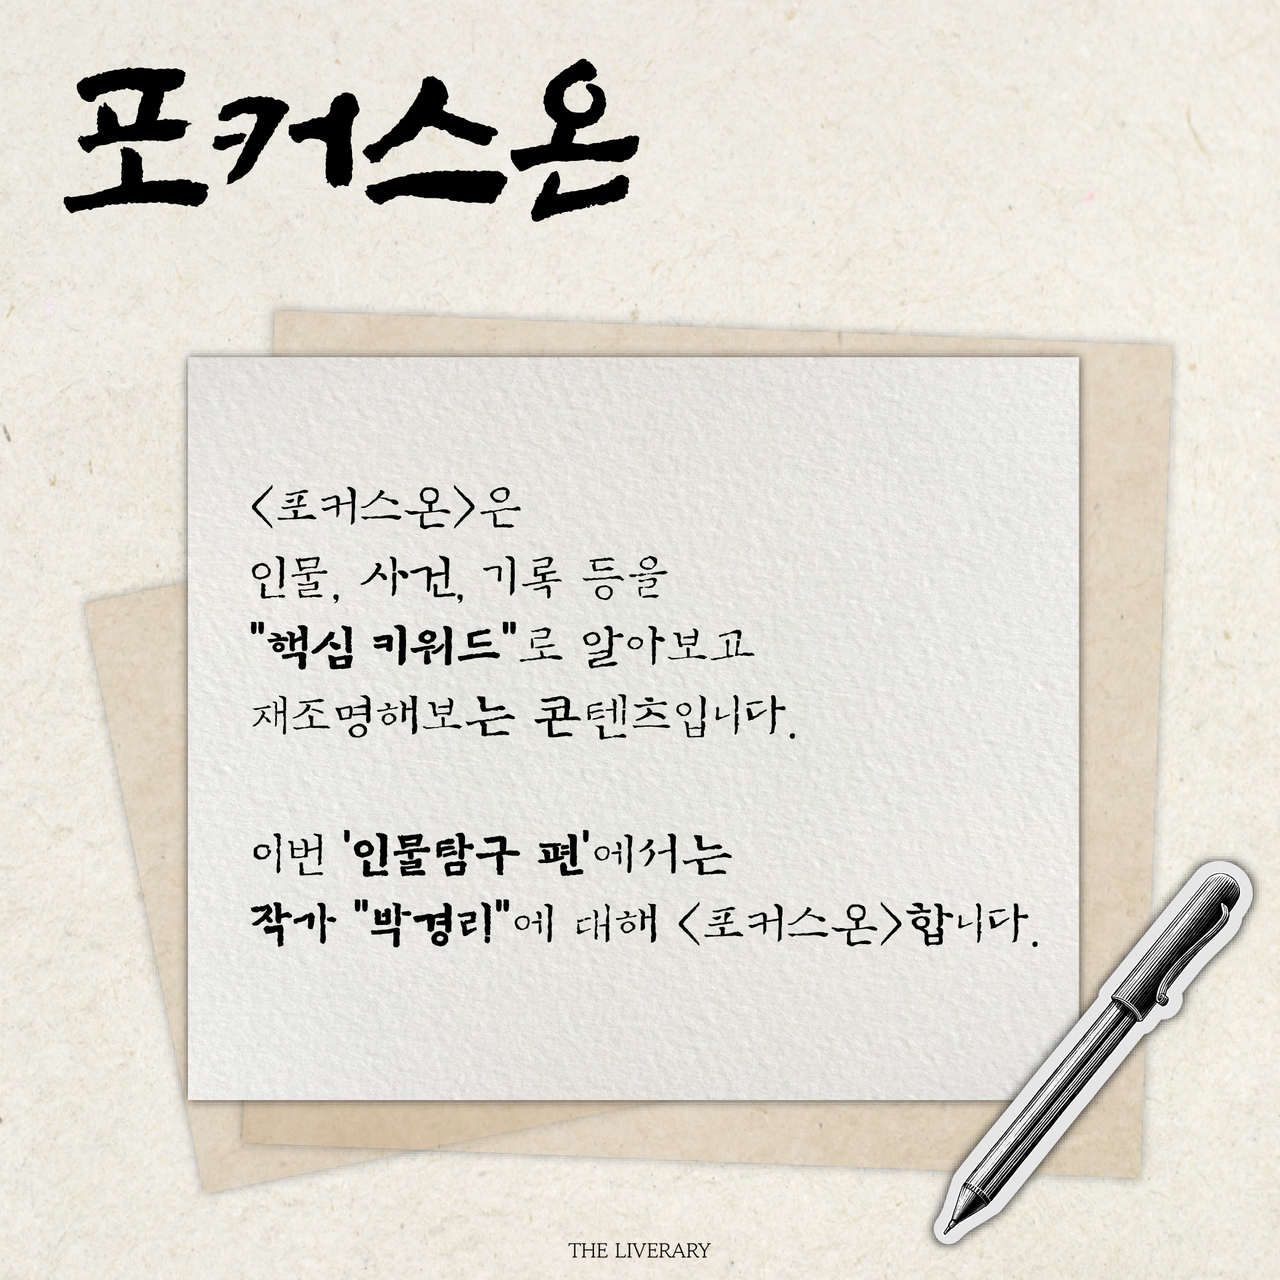 포커스온
<포커스온>은
인물, 사건, 기록 등을
"핵심 키워드"로 알아보고
재조명해보는 콘텐츠입니다.
이번 '인물탐구 편'에서는
작가 "박경리"에 대해 <포커스온>합니다.
THE LIVERARY